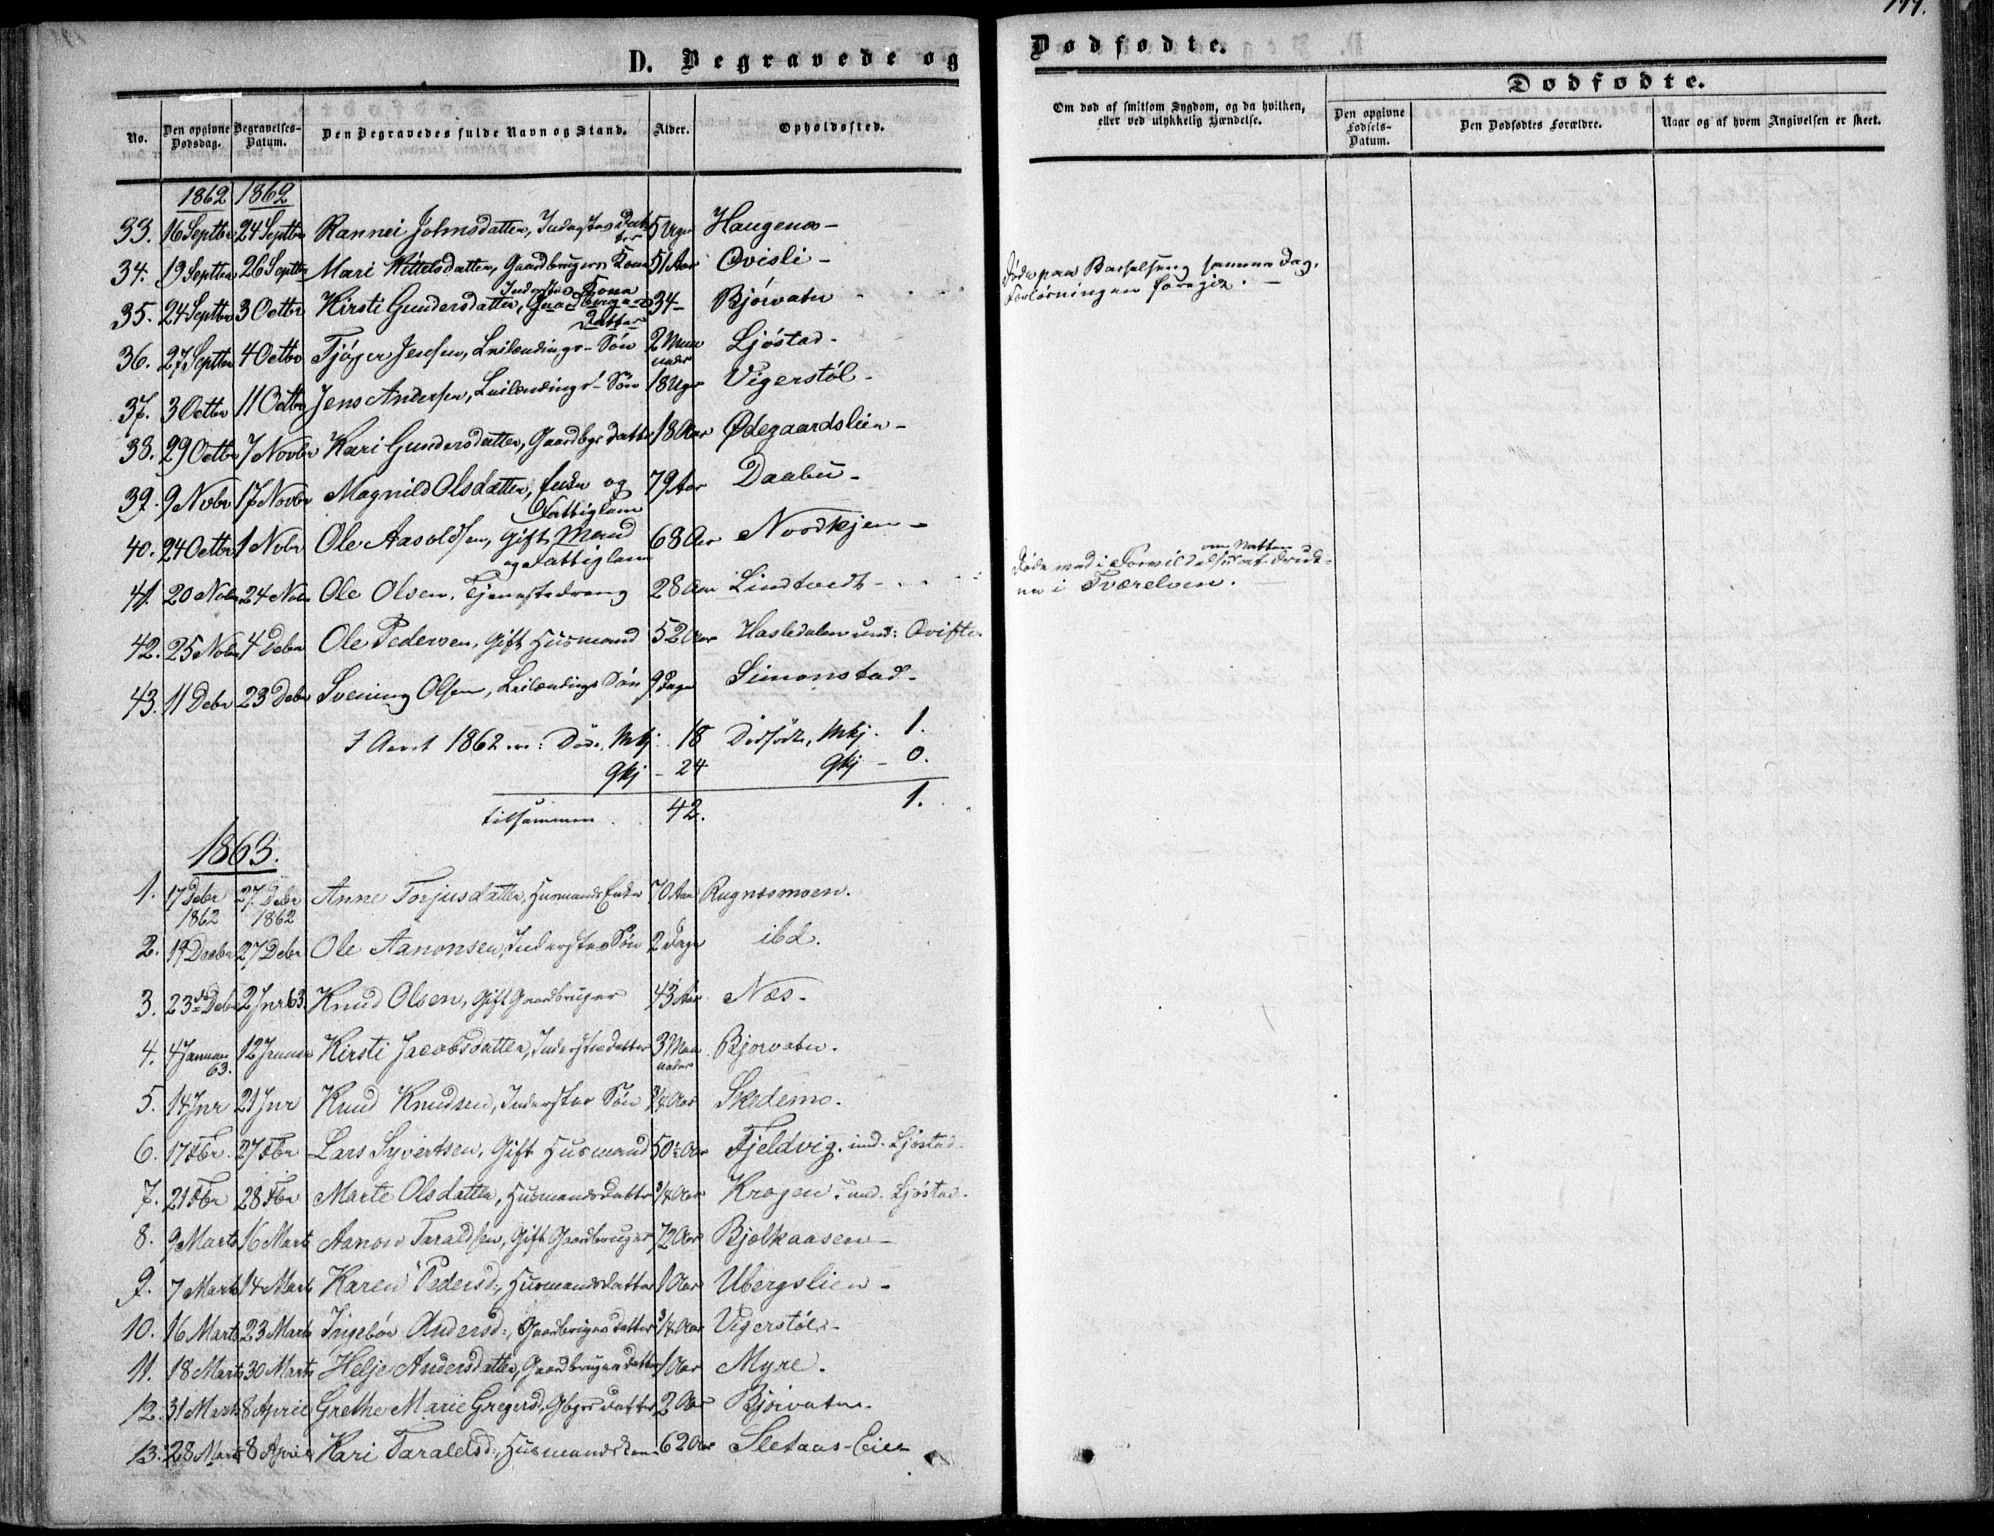 D. Begravede og
No.
Den opgivne Dødsdag.
Begravelses-Datum.
Den Begravedes fulde Navn og Stand.
Alder.
Opholdssted.
1862 1862
33. 16 Septbr 24 Septbr Rannei Johnsdatter, Inderstes Datter 5 Uger Haugenæs -
34. 19 Septbr 26 Septbr Mari Kittelsdatter, Gaardbrugers Kone 51 Aar Øvisli -
Inderstes Kone
35. 24 Septbr 3 Octbr Kirsti Gundersdatter, Gaardbrugers Datter 34 - Bjørvatn
36. 27 Septbr 4 Octbr Tjøger Jensen, Leilændings- Søn 2 Maaneder Ljøstad -
37. 3 Octbr 11 Octbr Jens Andersen, Leilændings- Søn 18 Uger Vigerstøl -
38. 29 Octbr 7 Novbr Kari Gundersdatter, Gaardbgr datter 18 Aar Ødegaardslien -
39. 9 Nvbr 17 Novbr Magnild Olsdatter, Enke og Fattiglem 79 Aar Daabu -
40. 24 Octbr 1 Nvbr Ole Aasoldsen, gift Mand og Fattiglem 68 Aar Nordkjen -
41. 20 Nvbr 24 Nvbr Ole Olsen, Tjenestedreng 28 Aar Lindtvedt -
42. 25 Nvbr 4 Debr Ole Pedersen, Gift Husmand 52 Aar Hasledalen und:
43. 11 Debr 23 Debr Svening Olsen, Leilændings Søn 9 Dage Simonstad -
I Aaret 1862 Døde, Mkj. 18 Dødfødte, Mkj. 1.
Qkj - 24 Qkj - 0.
tilsammen 42. 1.
1863.
1. 17 Debr 1862 27. Debr 1862 Anne Torjusdatter, Husmands Enke 70 Aar Rugnæsmoen.
2. 19 Decbr 27 Debr Ole Aanonsen, Inderstes Søn 2 Dage ibd.
3. 23de Debr 2 Jnr 63. Knud Olsen, Gift Gaardbruger 43 Aar Næs -
4. 4 Januar 63. 12 Januar Kirsti Jacobsdatter, Inderstedatter 3 Maaneder Bjorvatn.
5. 14 Jnr 21 Jnr Knud Knudsen, Inderstes Søn 3/4 Aar Skedemo.
6. 17 Fbr. 27 Fbr Lars Syvertsen, Gift Husmand 50 Aar Fjeldvig, und. Ljøstad.
7. 21 Fbr 28 Fbr Marte Olsdatter, Husmandsdatter 3/4 Aar Krogen, und. Ljøstad.
8. 9 Marts 16 Mart Aanon Taraldsen, Gift Gaardbruger 72 Aar Bjelkaasen -
9. 7 Marts 14 Marts Karen Pedersd:, Husmandsdatter 1 Aar Ubergslien -
10. 16 Marts 23 Marts Ingebor Andersd:, Gaardbruges datter 3/4 Aar Vigerstøl -
11. 18 Marts 30 Marts Helje Andersdatter, Gaardbruger datter 1 Aar Myre.
12. 31 Marts 8 April Grethe Marie Gregersd, Gbgrs datter 2 Aar Bjorvatn.
13. 28 Marts 8 April Kari Taraldsd:, Husmands Kone 62 Aar Sletaas-Eier
Dødfødte.
Om død af smitsom Sygdom, og da hvilken, eller ved ulykkelig Hændelse.
Dødfødte.
Den opgivne Fødsels-Datum.
Den Dødfødtes Forældre.
Naar og af hvem Angivelsen er skeet.
Døde paa Barselseng samme Dag,
Forløsningen foregik. -
om Natten
i Tværelven.